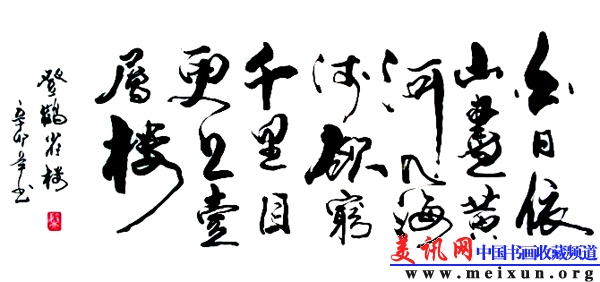 白日依
山盡黄
河入海
流欲窮
千里目
更上壹
層楼
登鶴雀楼
辛卯年书
美讯网中国书画收藏频道
www.meixun.org